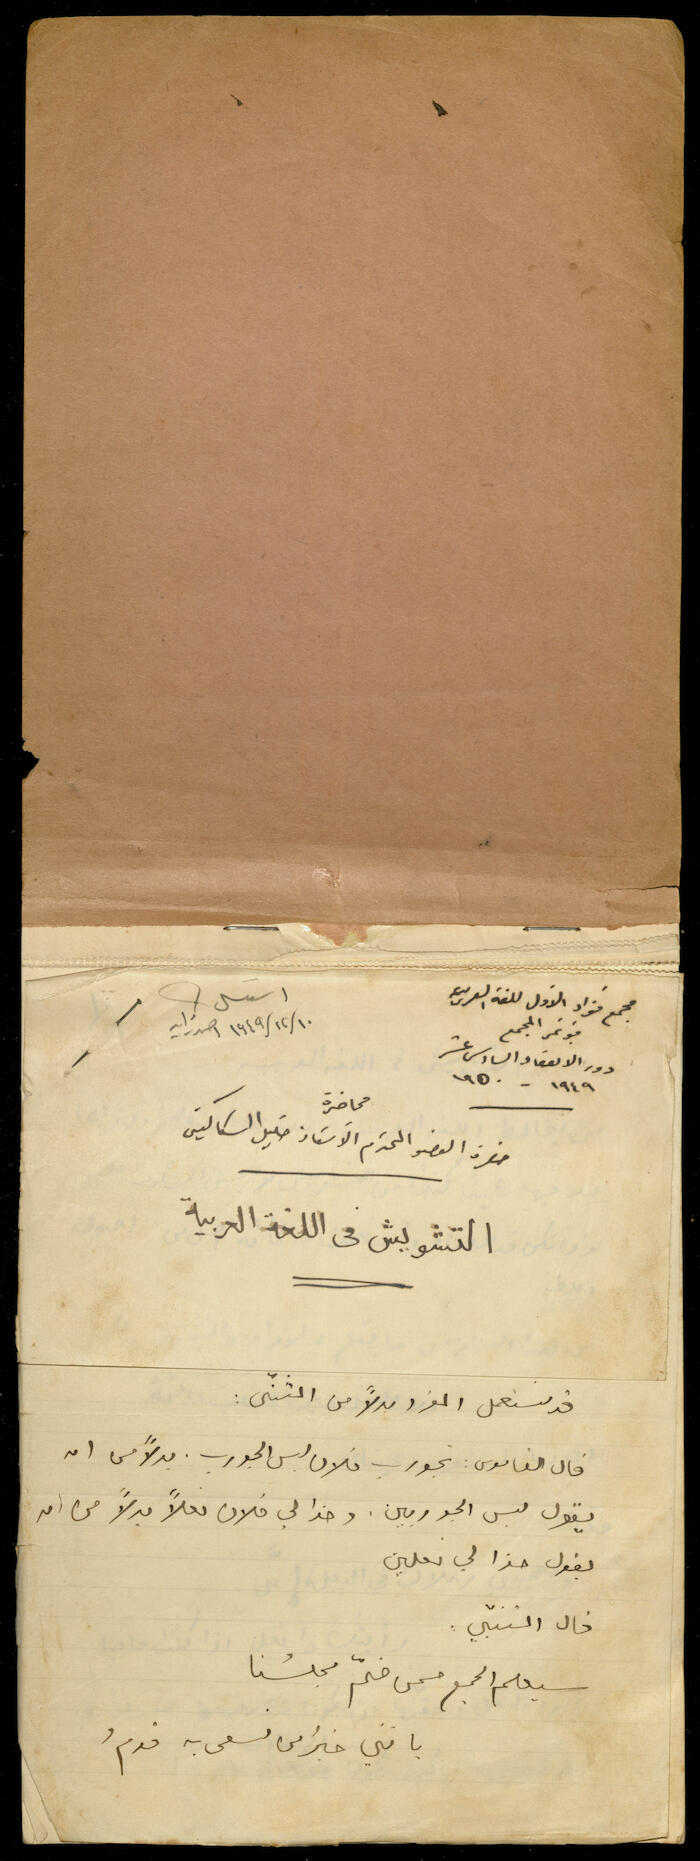 مجمع فؤاد الأول للغة العربية
مؤتمر المجمع
دور الانعقاد السادس عشر
١٩٤٩ - ١٩٥٠
١٩٤٩/١٢/١٠
محاضرة
حضرة العضو المحترم الأستاذ خليل السكاكيني
التشويش فى اللغة العربية
قد نستعمل المفرد بدلاً من المثنّى :
قال القاموس : تجورب فلان لبس الجورب . بدلاً من ان
يقول لبس الجوربين . وحذا لي فلان نعلاً بدلاً من ان
يقول حذا لي نعلين
قال المتنبّي :
سيعلم الجمع ممن ضمّ مجلسُنا
بانني خير من تسعى به قدمُ